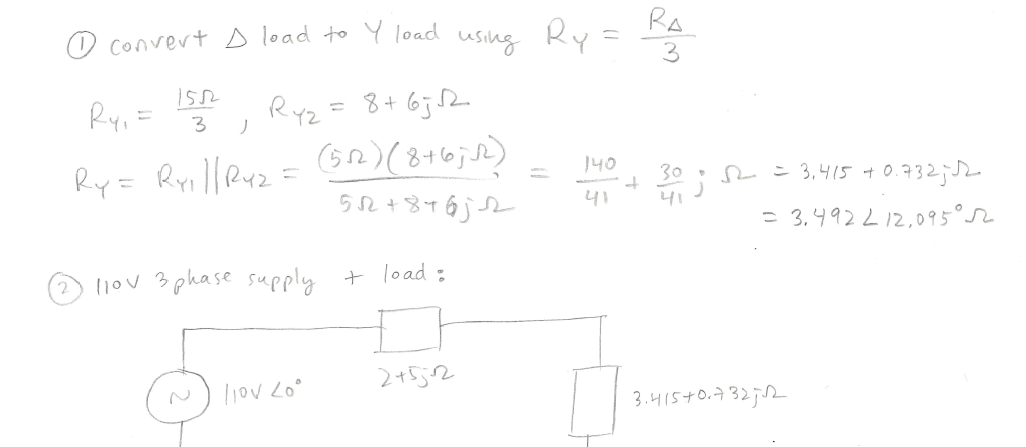 ① convert Δ load to Y load using R_Y = R_Δ / 3
R_Y1 = 15Ω / 3 , R_Y2 = 8 + 6jΩ
R_Y = R_Y1 || R_Y2 = (5Ω)(8+6jΩ) / (5Ω + 8 + 6jΩ) = 140/41 + 30/41 j Ω = 3.415 + 0.732jΩ
= 3.492 ∠ 12.095° Ω
② 110V 3 phase supply + load :
2+5jΩ
~ 110V ∠0°
3.415+0.732jΩ